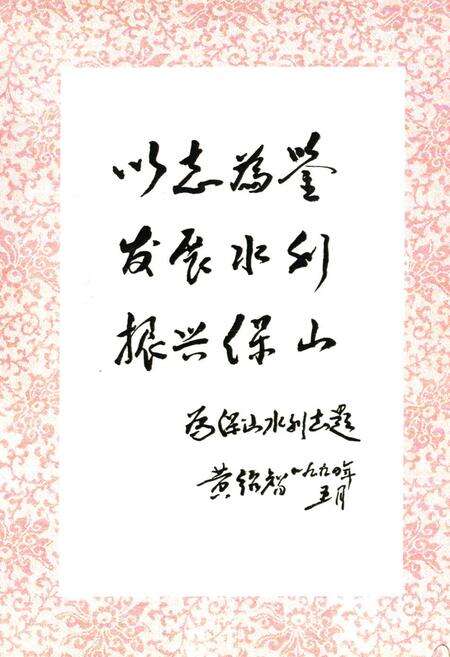 以志為鉴
发展水利
振兴保山
为保山水利志题
黄绍智
一九九〇年
五月